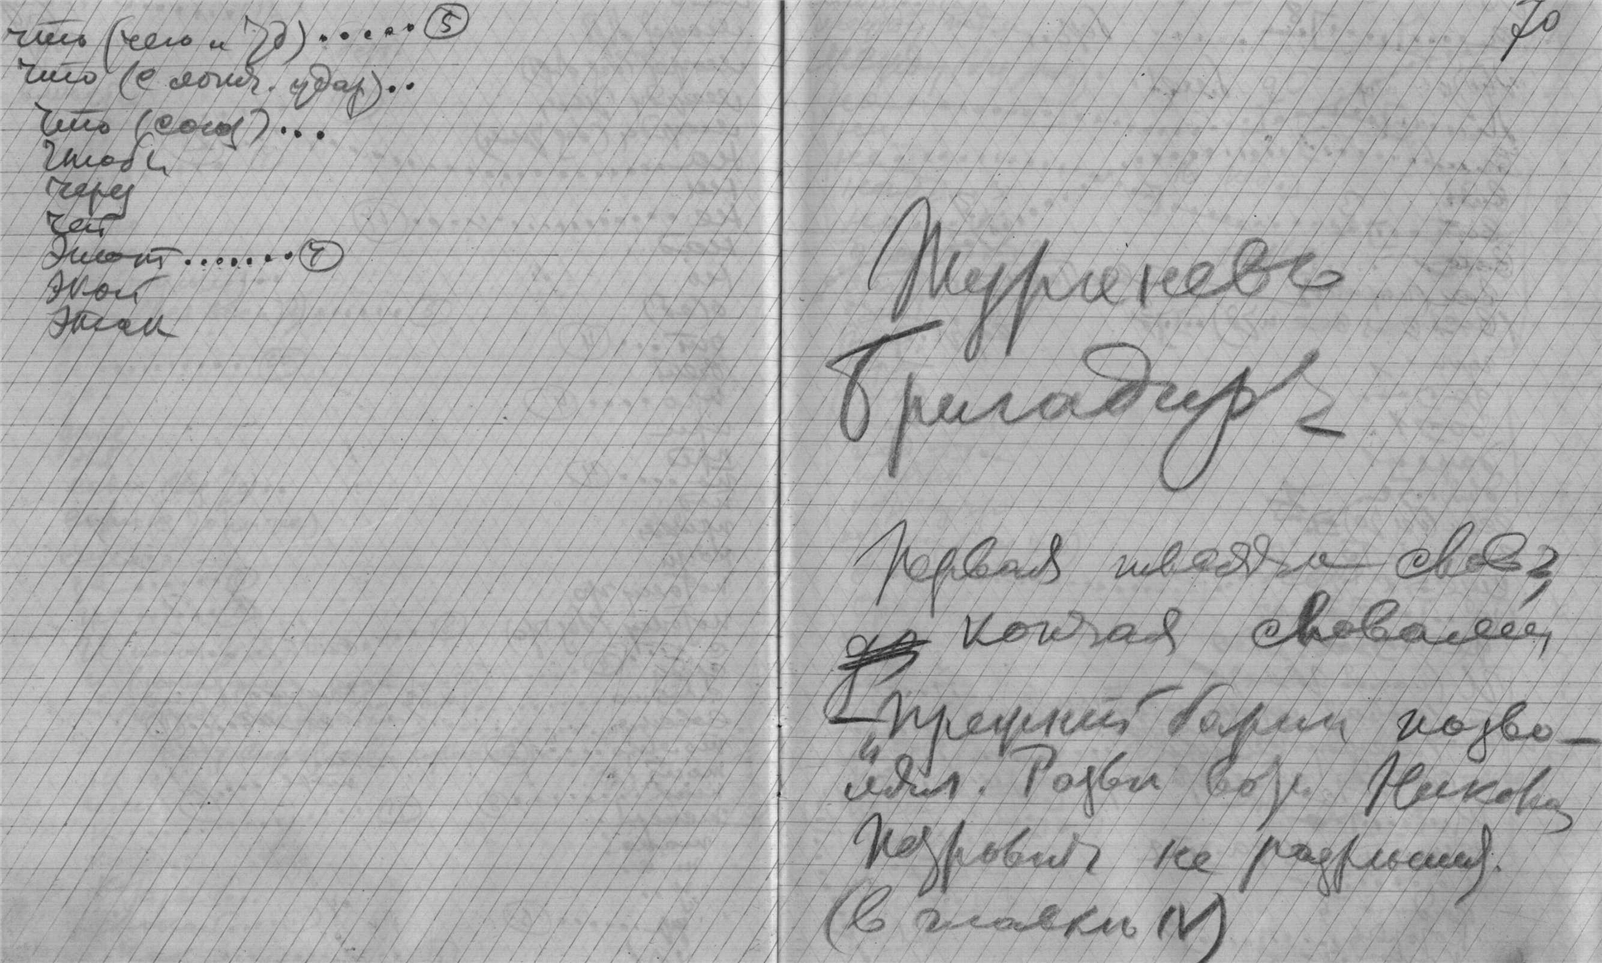 что (чего и т д) ..... 5
что (с логич. удар) ..
что (союз) ...
чтобы
через
чей
Этот ....... 7
Экой
Этак
70
Тургеневъ
Бригадир
Первая тысяча слов,
кончая словами
"Прежний барин позво-
лял. Разве вот Никол
Петрович не разрешил.
(в главе IV)